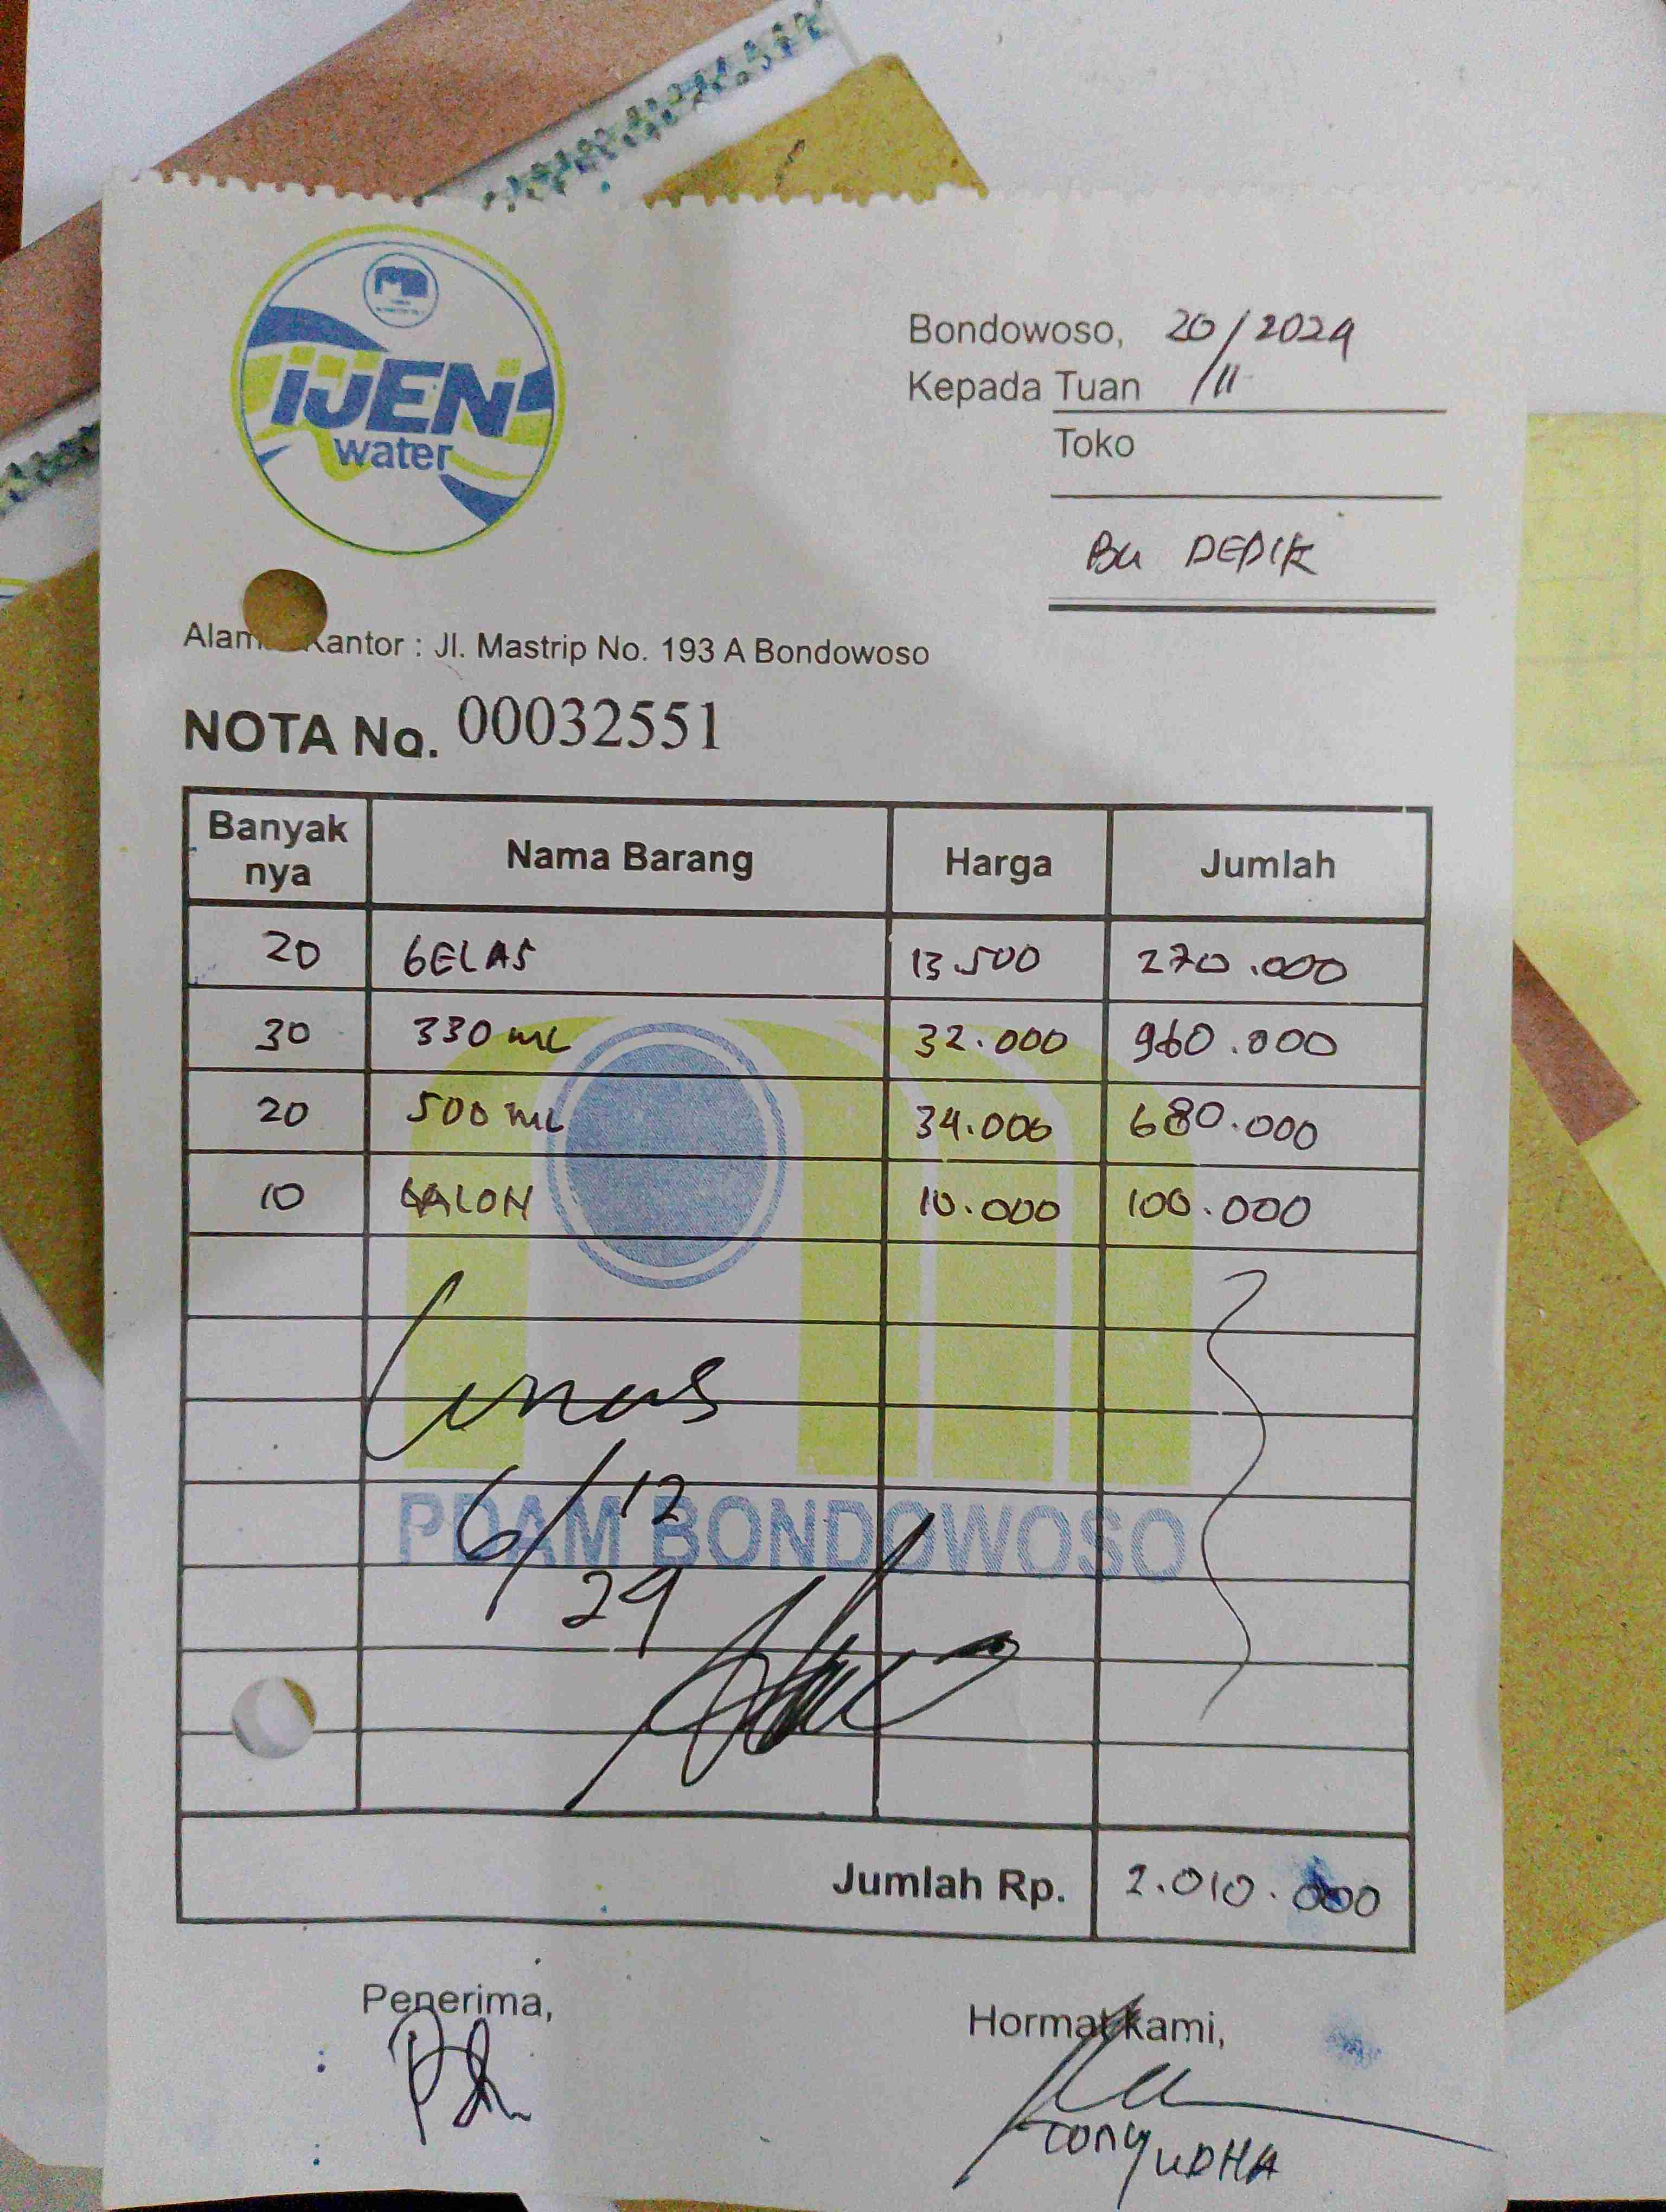 iJEN
water
Bondowoso, 20/11/2024
Kepada Tuan
Toko
Bu DEDIK
Alam Kantor : Jl. Mastrip No. 193 A Bondowoso
NOTA No. 00032551
Banyak nya Nama Barang Harga Jumlah
20 GELAS 13.500 270.000
30 330 mL 32.000 960.000
20 500 mL 34.000 680.000
10 GALON 10.000 100.000
Lunas
6/12
24
PDAM BONDOWOSO
Jumlah Rp. 2.010.000
Penerima,
Hormat kami,
TONY YUDHA